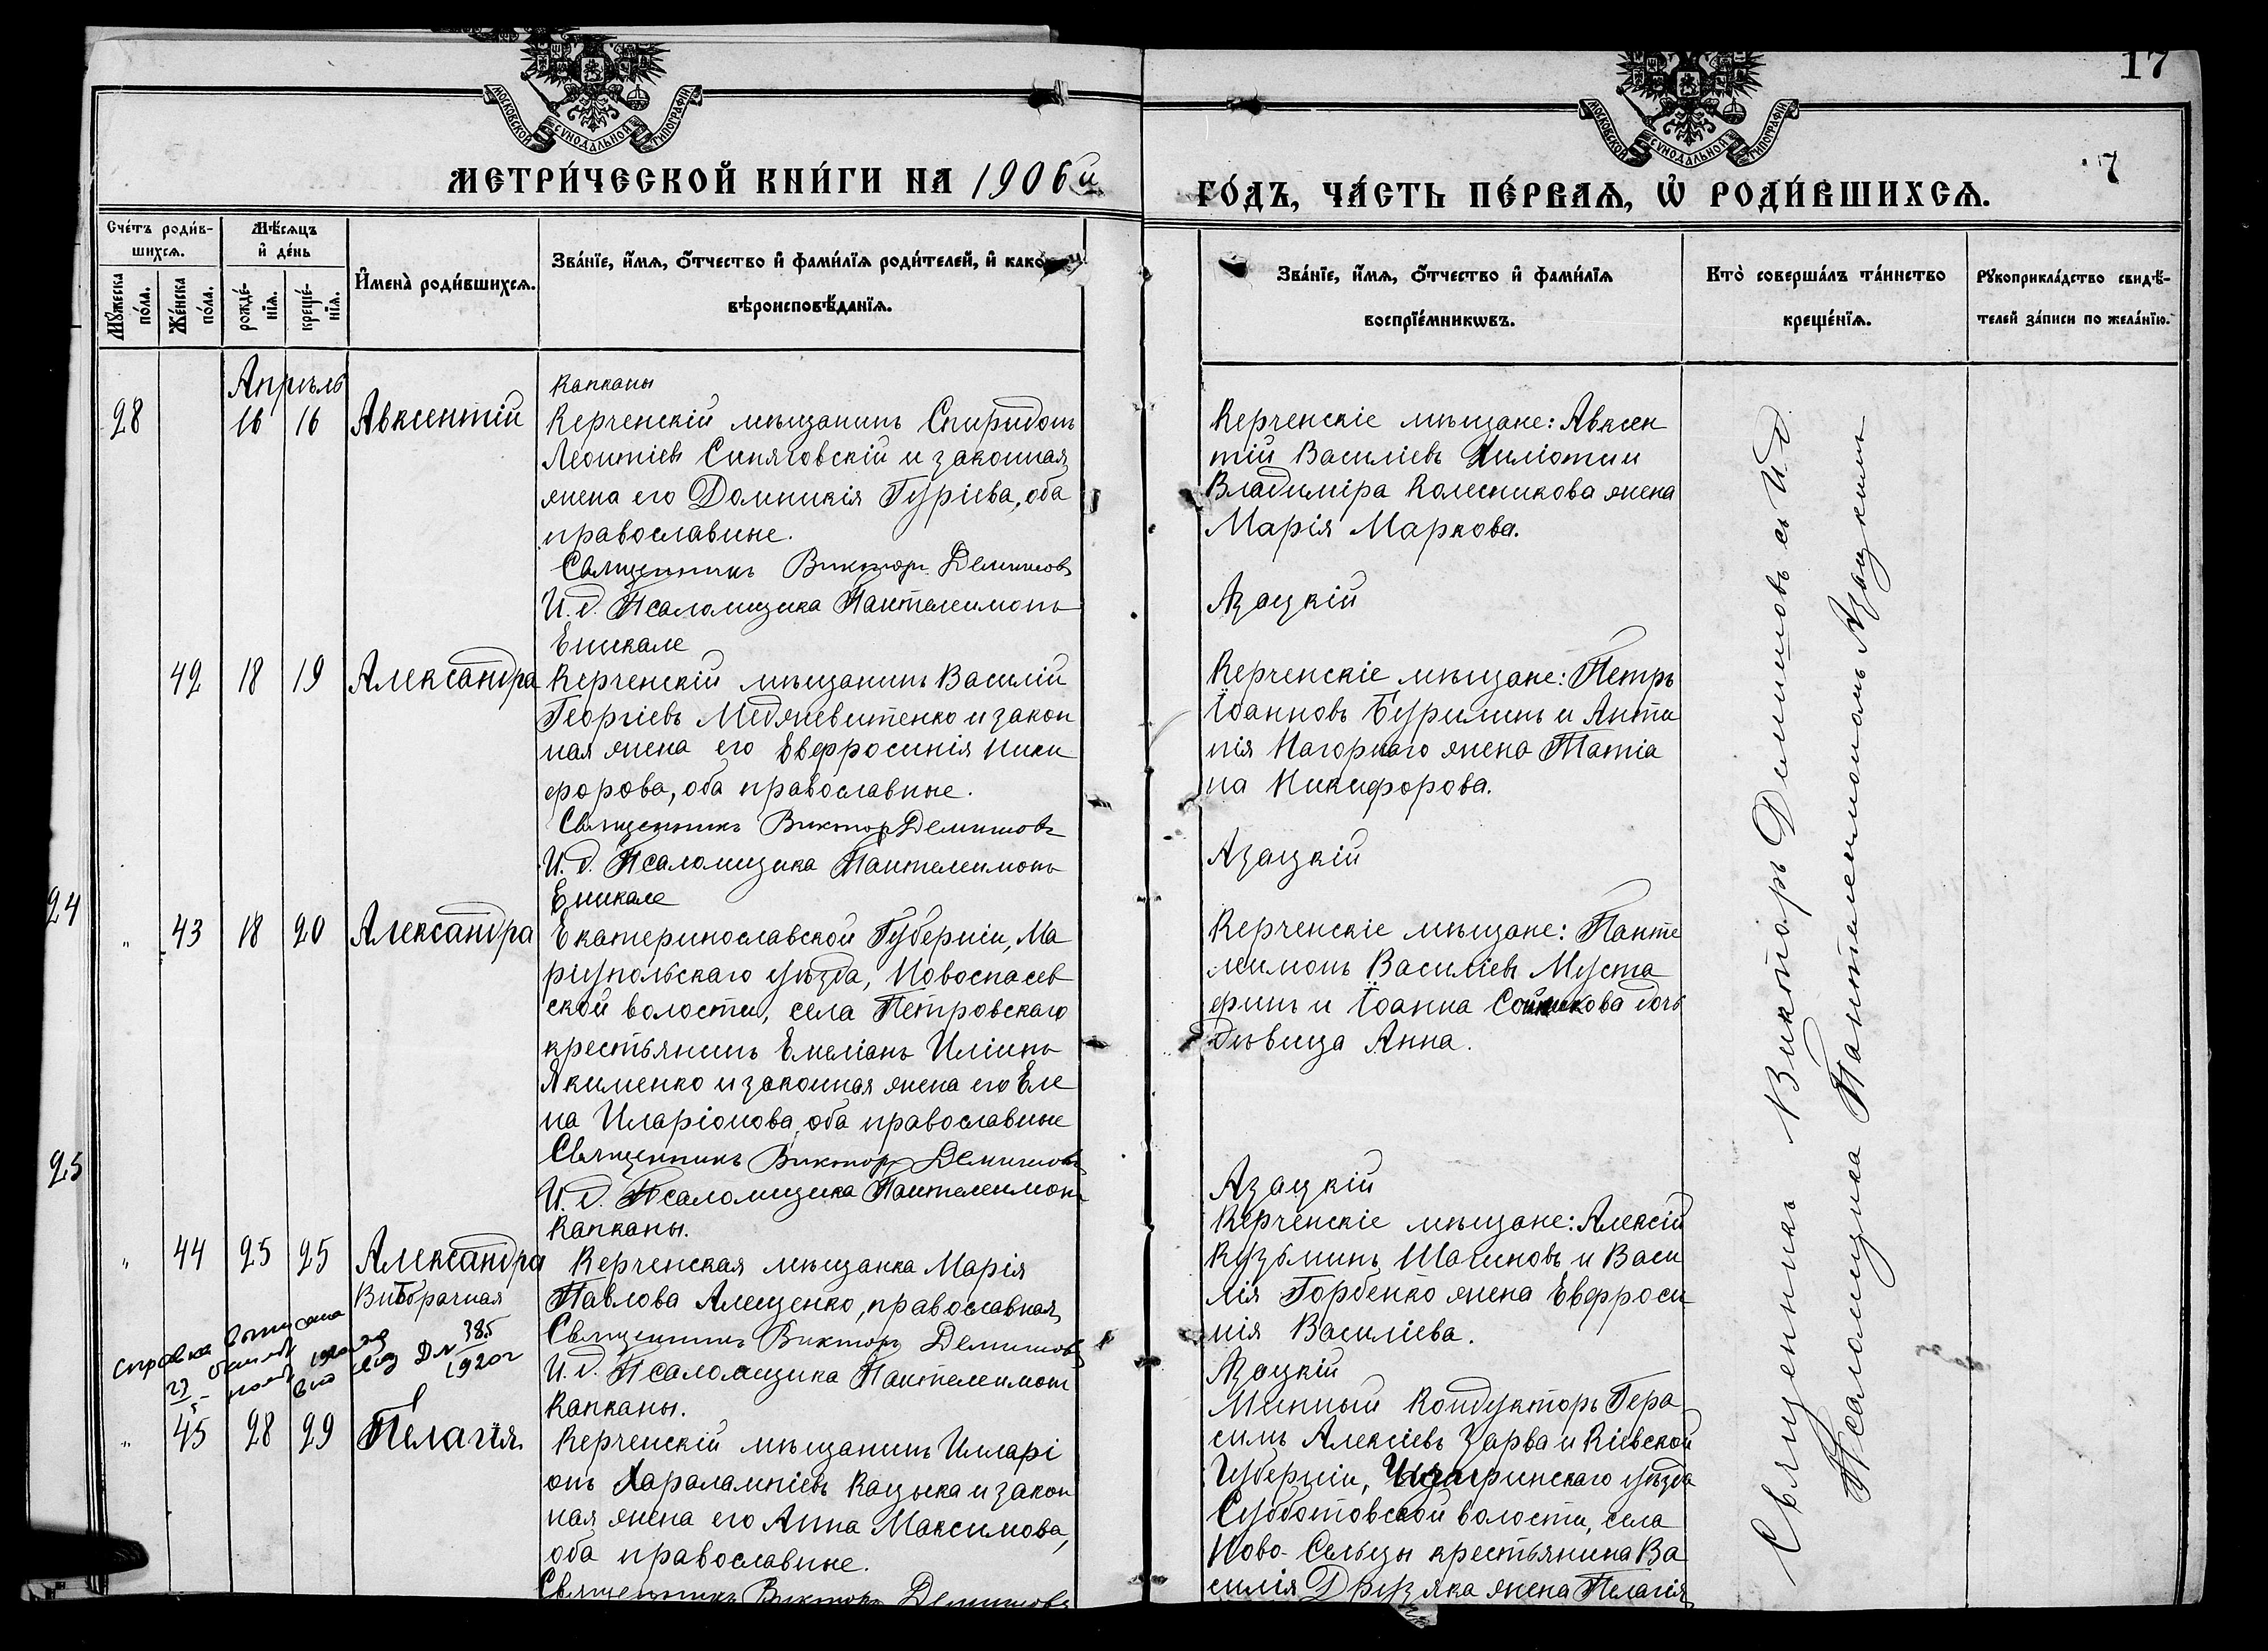 17
7
МОСКОВСКОЙ СѴНОДАЛЬНОЙ ТИПОГРАФІИ
МОСКОВСКОЙ СѴНОДАЛЬНОЙ ТИПОГРАФІИ
МЕТРИ́ЧЕСКОЙ КНИ́ГИ НА 1906й
ГО́ДЪ, ЧА́СТЬ ПЕ́РВАѦ, Ѡ҆ РОДИ́ВШИХСѦ.
Сче́тъ роди́в-
шихсѧ.
Мѣ́сѧцъ
и҆ де́нь
Мꙋ́жеска
по́ла.
Же́нска
по́ла.
рожде́-
нїѧ.
креще́-
нїѧ.
И҆мена̀ роди́вшихсѧ.
Зва́нїе, и҆́мѧ, ѻ҆́тчество и҆ фами́лїѧ роди́телей, и҆ како
вѣроисповѣ́данїѧ.
Зва́нїе, и҆́мѧ, ѻ҆́тчество и҆ фами́лїѧ
воспрїе́мникѡвъ.
Кто̀ соверша́лъ та́инство
креще́нїѧ.
Рꙋкоприкла́дство свидѣ́-
телей за́писи по жела́нїю.
Апрѣль
28 16 16 Авксентій
Капканы
Керченскій мѣщанинъ Спиридонъ
Леонтіевъ Синяговскій и законная
жена его Домникія Гуріева, оба
православные.
Священникъ Викторъ Демишовъ
И.д. Псаломщика Пантелеимонъ
Керченскіе мѣщане: Авксен
тій Василіевъ и
Владиміра Колесникова жена
Марія Маркова.
Азацкій
42 18 19 Александра
Еникале
Керченскій мѣщанинъ Василій
Георгіевъ и закон
ная жена его Евфросинія Ники
форова, оба православные.
Священникъ Викторъ Демишовъ
И.д. Псаломщика Пантелеимонъ
Керченскіе мѣщане: Петръ
Іоанновъ Бурилинъ и Анти
пія Нагорнаго жена Татіа
на Никифорова.
Азацкій
24
" 43 18 20 Александра
Еникале
Екатеринославской Губерніи, Ма
ріупольскаго уѣзда, Новоспасев
ской волости, села Петровскаго
крестьянинъ Емеліанъ Иліинъ
Якименко и законная жена его Еле
на Иларіонова, оба православные
Священникъ Викторъ Демишовъ
И.д. Псаломщика Пантелеимонъ
Керченскіе мѣщане: Панте
леимонъ Василіевъ Муста
финъ и Іоанна дочь
дѣвица Анна.
Азацкій
25
" 44 25 25 Александра
Внѣбрачная
Капканы.
Керченская мѣщанка Марія
Павлова Алещенко, православная
Священникъ Викторъ Демишовъ
И.д. Псаломщика Пантелеимонъ
Керченскіе мѣщане: Алексій
Кузьминъ Шагиновъ и Васи
лія Горбенко жена Евфроси
нія Василіева.
Азацкій
справка
385
1920г
" 45 28 29 Пелагія
Капканы.
Керченскій мѣщанинъ Илларі
онъ Харалампіевъ Кацыка и закон
ная жена его Анна Максимова,
оба православные.
Священникъ Викторъ Демишовъ
Минный Кондукторъ Гера
симъ Алексіевъ Зарва и Кіевской
Губерніи, Чигиринскаго уѣзда
Субботовской волости, села
Ново-Сельцы крестьянина Ва
силія жена Пелагія
Священникъ Викторъ Демишовъ съ И.д.
Псаломщика Пантелеимономъ Азацкимъ